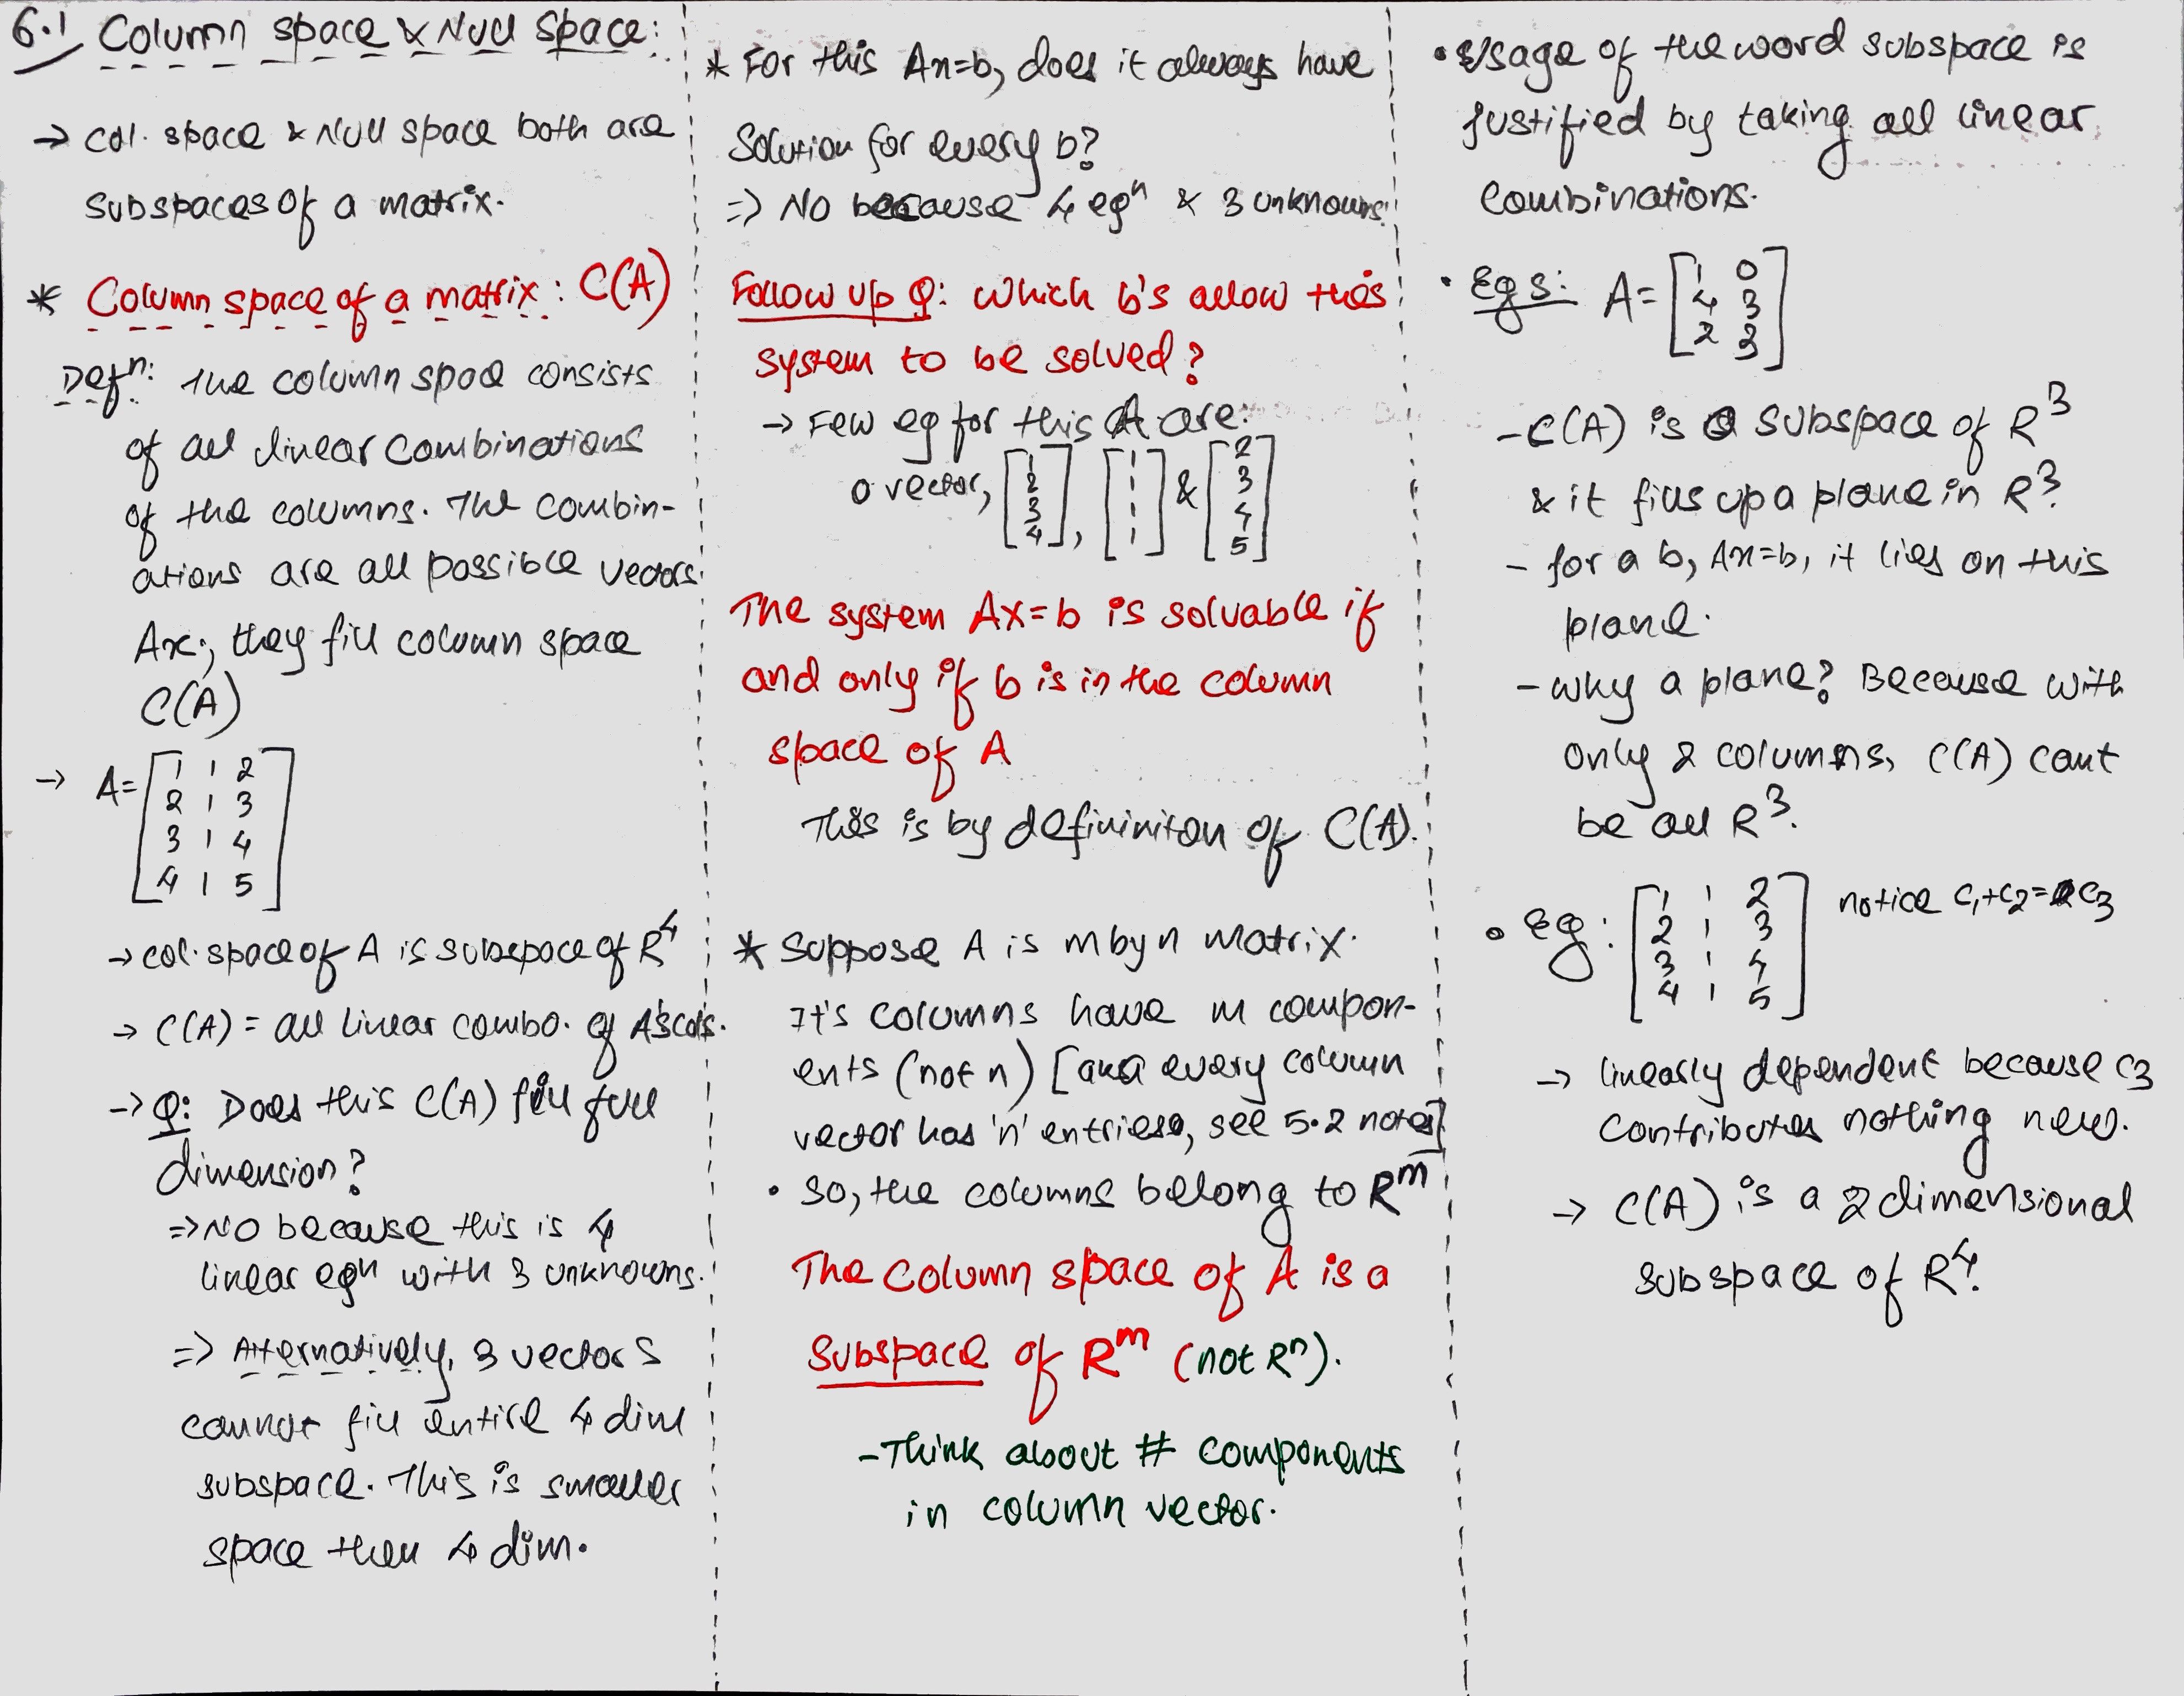 6.1 Column space & Null space:
→ Col. space & Null space both are
subspaces of a matrix.
* Column space of a matrix: C(A)
Defⁿ: The column space consists
of all linear combinations
of the columns. The combin-
ations are all possible vectors
Ax; they fill column space
C(A)
→ A = [1 1 2
2 1 3
3 1 4
4 1 5]
→ col. space of A is subspace of R⁴
→ C(A) = all linear combo. of A's cols.
→ Q: Does this C(A) fill full
dimension?
⇒ NO because this is 4
linear eqn with 3 unknowns.
⇒ Alternatively, 3 vectors
cannot fill entire 4 dim
subspace. This is smaller
space then 4 dim.
* For this Ax=b, does it always have
solution for every b?
⇒ No because 4 eqⁿ & 3 unknowns.
Follow up Q: Which b's allow this
system to be solved?
→ Few eg for this A are:
0 vector, [1 2 3 4], [1 1 1 1] & [2 3 4 5]
The system Ax=b is solvable if
and only if b is in the column
space of A
This is by defininiton of C(A).
* Suppose A is m by n matrix.
It's columns have m compon-
ents (not n) [aka every column
vector has 'n' entries, see 5.2 notes]
• So, the columns belong to Rᵐ
The column space of A is a
subspace of Rᵐ (not Rⁿ).
- Think about # components
in column vector.
• Usage of the word subspace is
justified by taking all linear
combinations.
• Egs: A = [1 0
4 3
2 3]
- C(A) is a subspace of R³
& it fills up a plane in R³.
- for a b, Ax=b, it lies on this
plane.
- Why a plane? Because with
only 2 columns, C(A) cant
be all R³.
• eg: [1 1 2
2 1 3
3 1 4
4 1 5] notice c₁+c₂=c₃
→ linearly dependent because c3
contributes nothing new.
→ C(A) is a 2 dimensional
subspace of R⁴.